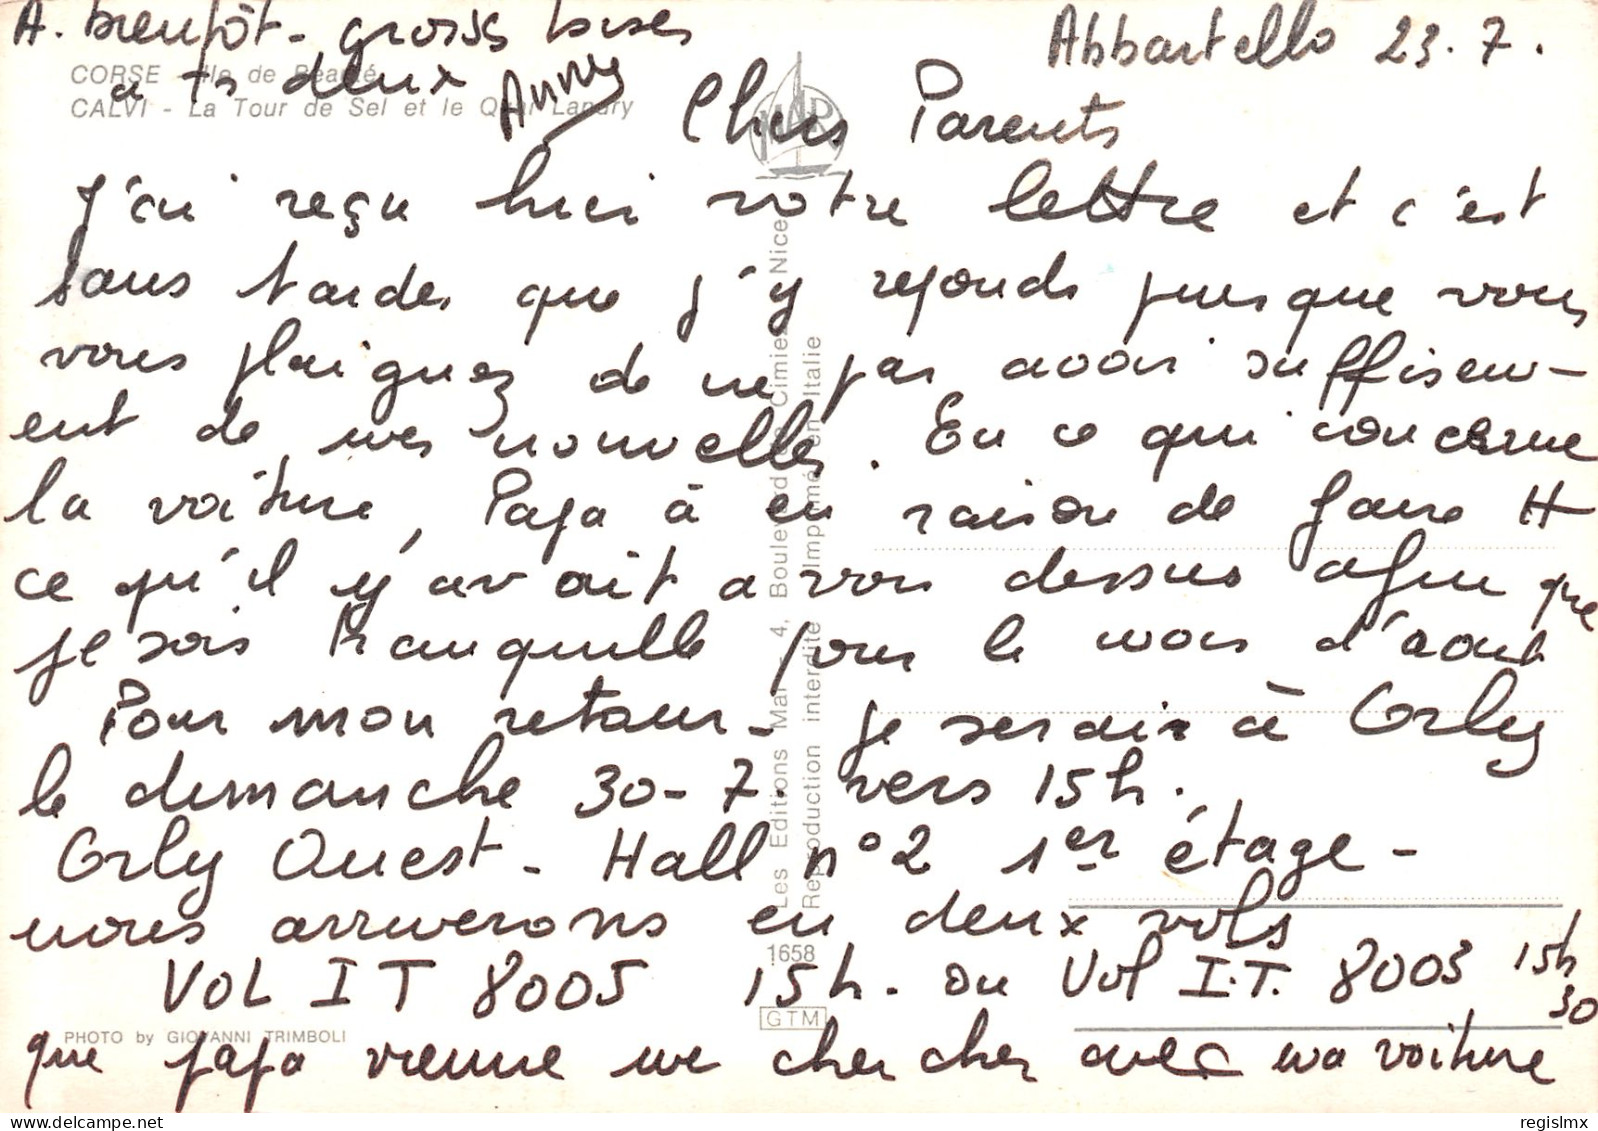 A. bientôt - grosses bises
à ts deux Anny
CORSE - Ile de Beauté
CALVI - La Tour de Sel et le Quai Landry
Abbartello 23.7.
MAR
Chers Parents
J'ai reçu hier votre lettre et c'est
sans tarder que j'y reponds puisque vous
vous plaignez de ne pas avoir suffisem-
ent de mes nouvelles. En ce qui concerne
la voiture, Papa à eu raison de faire tt
ce qu'il y avait a voir dessus afin que
je sois tranquille pour le mois d'aout
Pour mon retour - je serai à Orly
le dimanche 30-7. vers 15h.
Orly Ouest - Hall n°2 1er étage -
nous arriverons en deux vols
VOL IT 8005 15h. ou Vol I.T. 8003 15h
30
que papa vienne me chercher avec ma voiture
Les Editions Mar - 4, Boulevard de Cimiez Nice
Reproduction interdite Imprimé en Italie
1658
GTM
PHOTO by GIOVANNI TRIMBOLI
regislmx